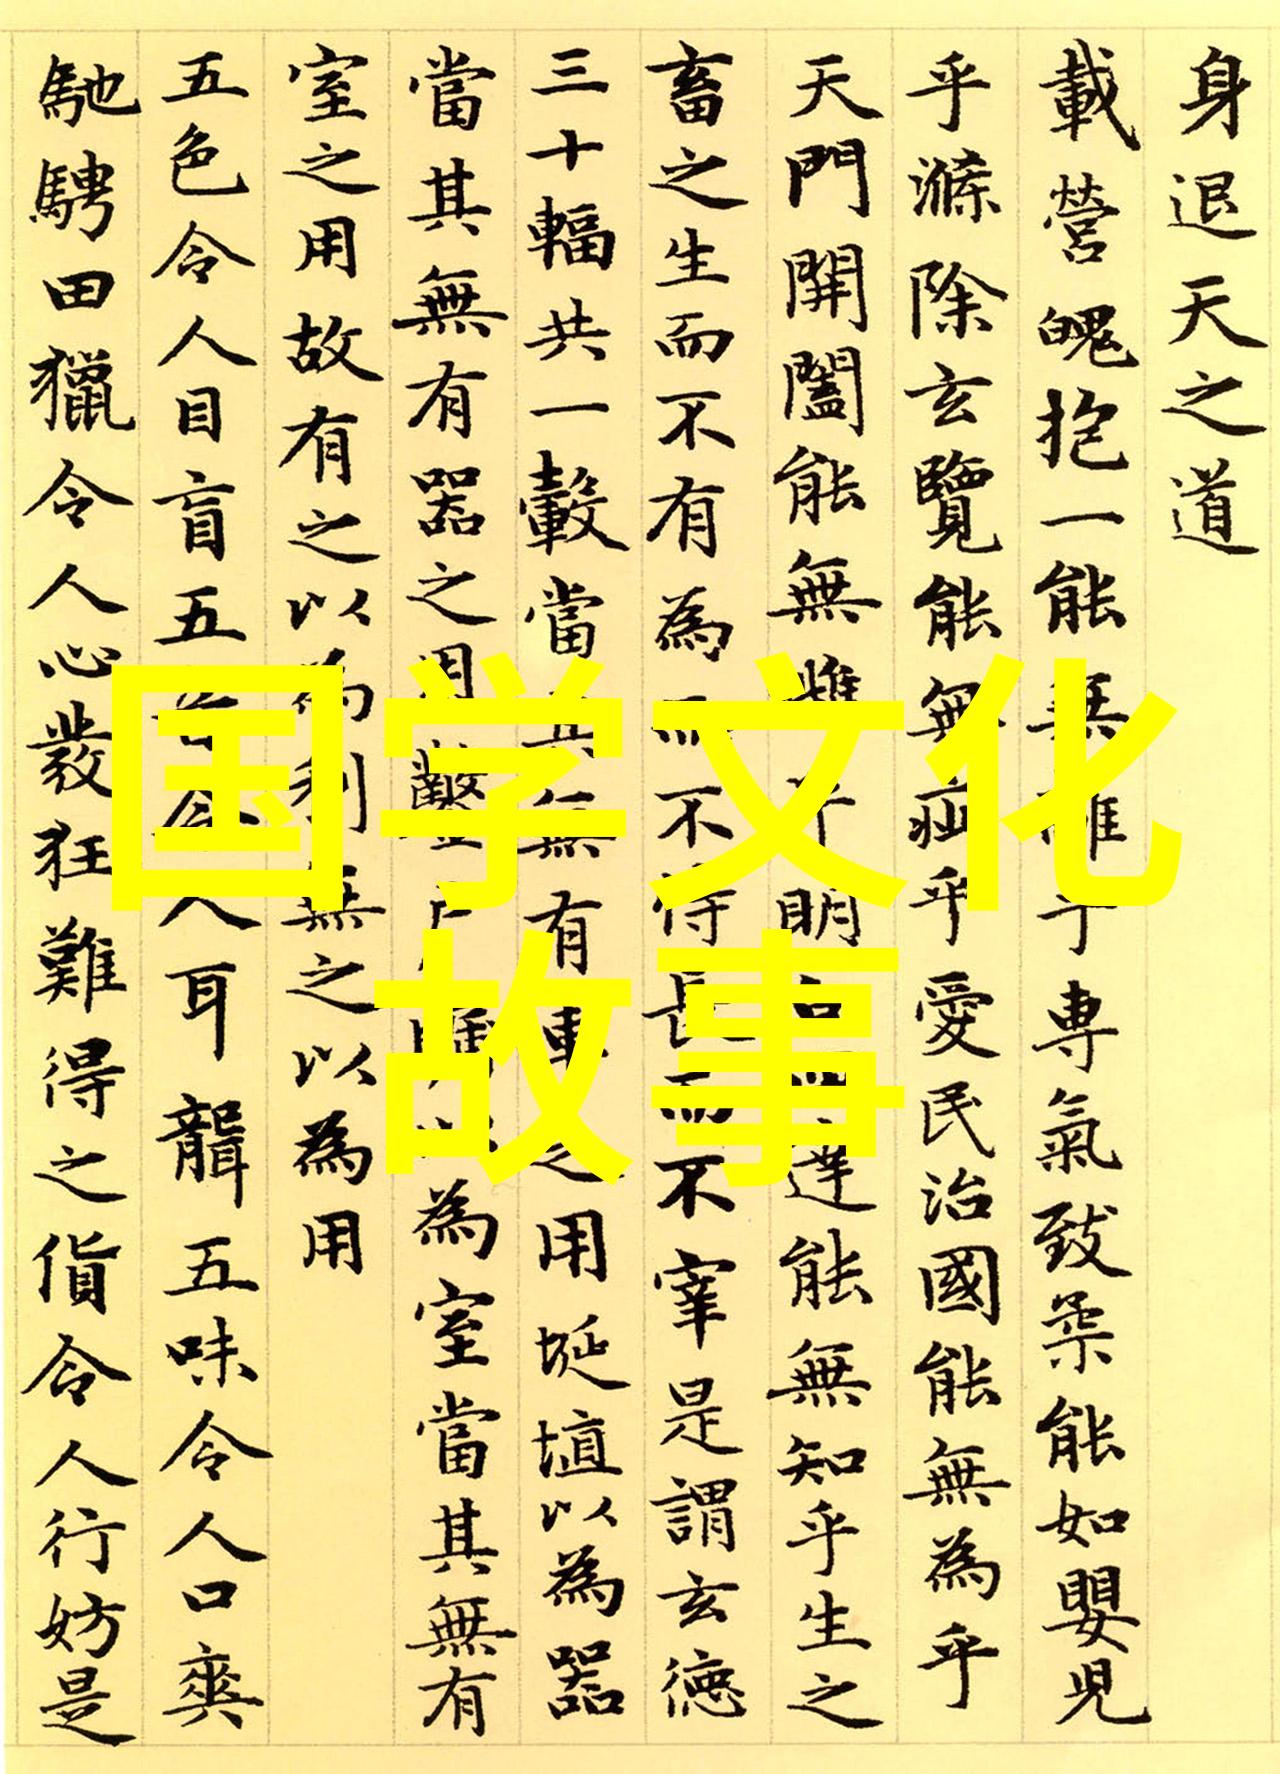 身退天之道
載營魄抱一能無離乎専氣致柔能如嬰児
乎滌除玄覽能無疵乎愛民治國能無為乎
天門開闔能無雌乎明白四達能無知乎生之
畜之生而不有為而不恃長而不宰是謂玄德
三十輻共一轂當其無有車之用埏埴以為器
當其無有器之用鑿戶牖以為室當其無有
室之用故有之以為利無之以為用
五色令人目盲五音令人耳聾五味令人口爽
馳騁田獵令人心發狂難得之貨令人行妨是
国学文化
故事